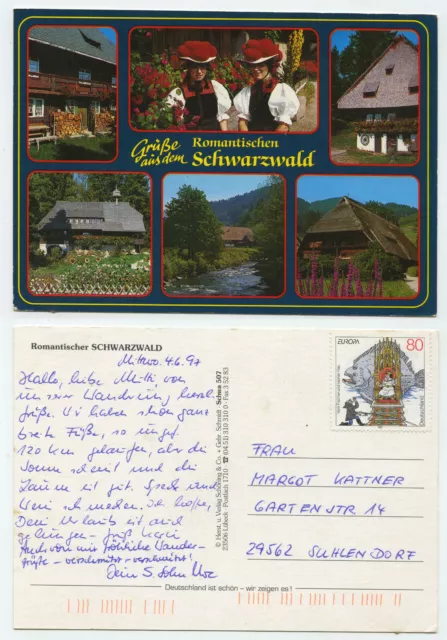 Grüße
aus dem
Romantischen
Schwarzwald
Romantischer SCHWARZWALD
Mittwo. 4.6.97
Hallo, liebe Mutti von
unserer Wanderung herzl.
Grüße. Wir haben schon ganz
breite Füße, so ungef.
120 km gelaufen, aber die
Sonne scheint und die
Laune ist gut. Speck und
Wein schmecken. Ich hoffe,
Dein Urlaub ist auch
gelungen - Gruß
Auch von mir fröhliche Wander-
grüße - verschmitzt - verschwitzt!
Dein S. Sohn Uwe
© Herst. u. Verlag Schöning & Co. + Gebr. Schmidt · Schwa 507
23506 Lübeck · Postfach 1710 · ☎ (04 51) 310 310 0 · Fax 3 52 83
EUROPA
80
Deutschland
FRAU
MARGOT KATTNER
GARTENSTR. 14
29562 SUHLENDORF
Deutschland ist schön – wir zeigen es!